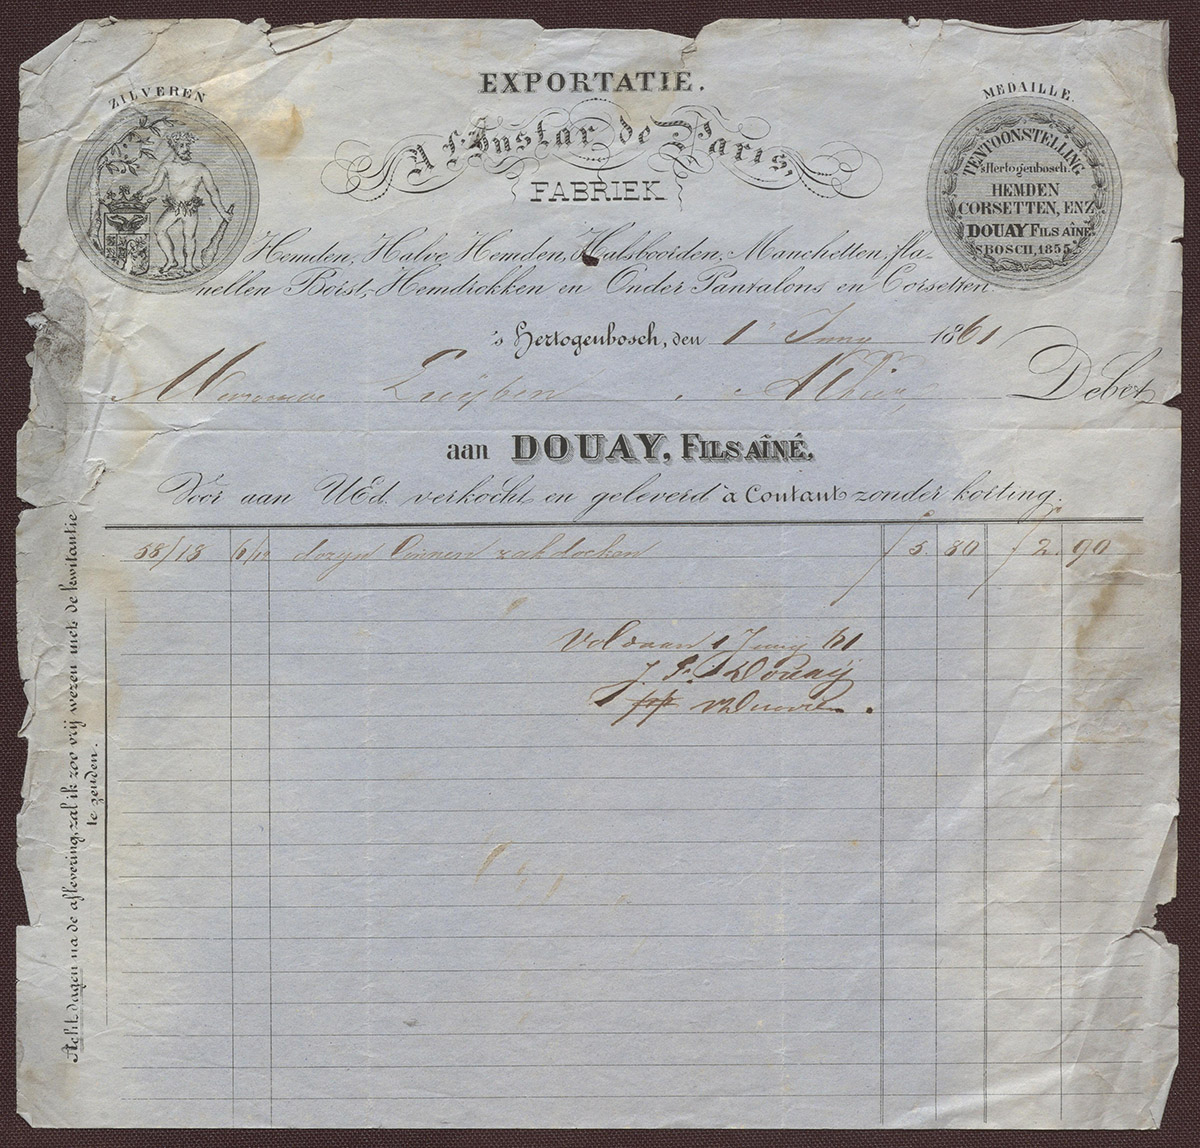 EXPORTATIE.
ZILVEREN
MEDAILLE.
A l'Instar de Paris,
FABRIEK
TENTOONSTELLING
'sHertogenbosch.
HEMDEN
CORSETTEN, ENZ.
DOUAY FILS AÎNÉ
'SBOSCH, 1855
Hemden, Halve Hemden, Halsboorden, Manchetten, fla-
nellen Borst, Hemdrokken en Onder Pantalons en Corsetten
's Hertogenbosch, den 1 Juny 1861
Mevrouw Luijben Debet
aan DOUAY, FILS AÎNÉ,
Voor aan UEd. verkocht en geleverd à Contant zonder korting.
58/18 6/12 dozijn linnen zakdoeken f 5. 80 f 2. 90
Voldaan 1 Juny 61
J. F. Douaij
pp
Acht dagen na de aflevering, zal ik zoo vrij wezen met de kwitantie
te zenden.